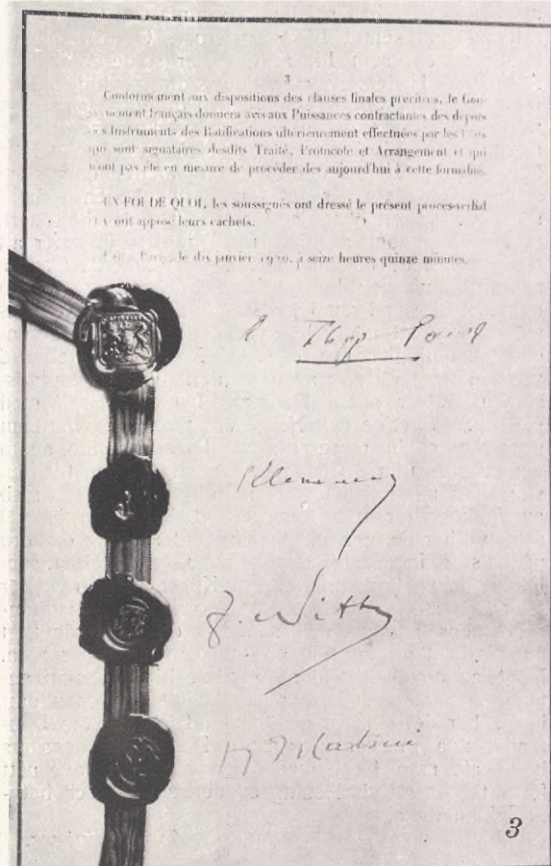 3
Conformément aux dispositions des clauses finales précitées, le Gou-
nement français donnera avis aux Puissances contractantes des dépôts
Instruments des Ratifications ultérieurement effectuées par les
qui sont signataires desdits Traité, Protocole et Arrangement et qui
pas été en mesure de procéder dès aujourd'hui à cette formalité.
EN FOI DE QUOI, les soussignés ont dressé le présent procès-verbal
ont apposé leurs cachets.
le dix janvier 1920, à seize heures quinze minutes.
Clemenceau
Matsui
3